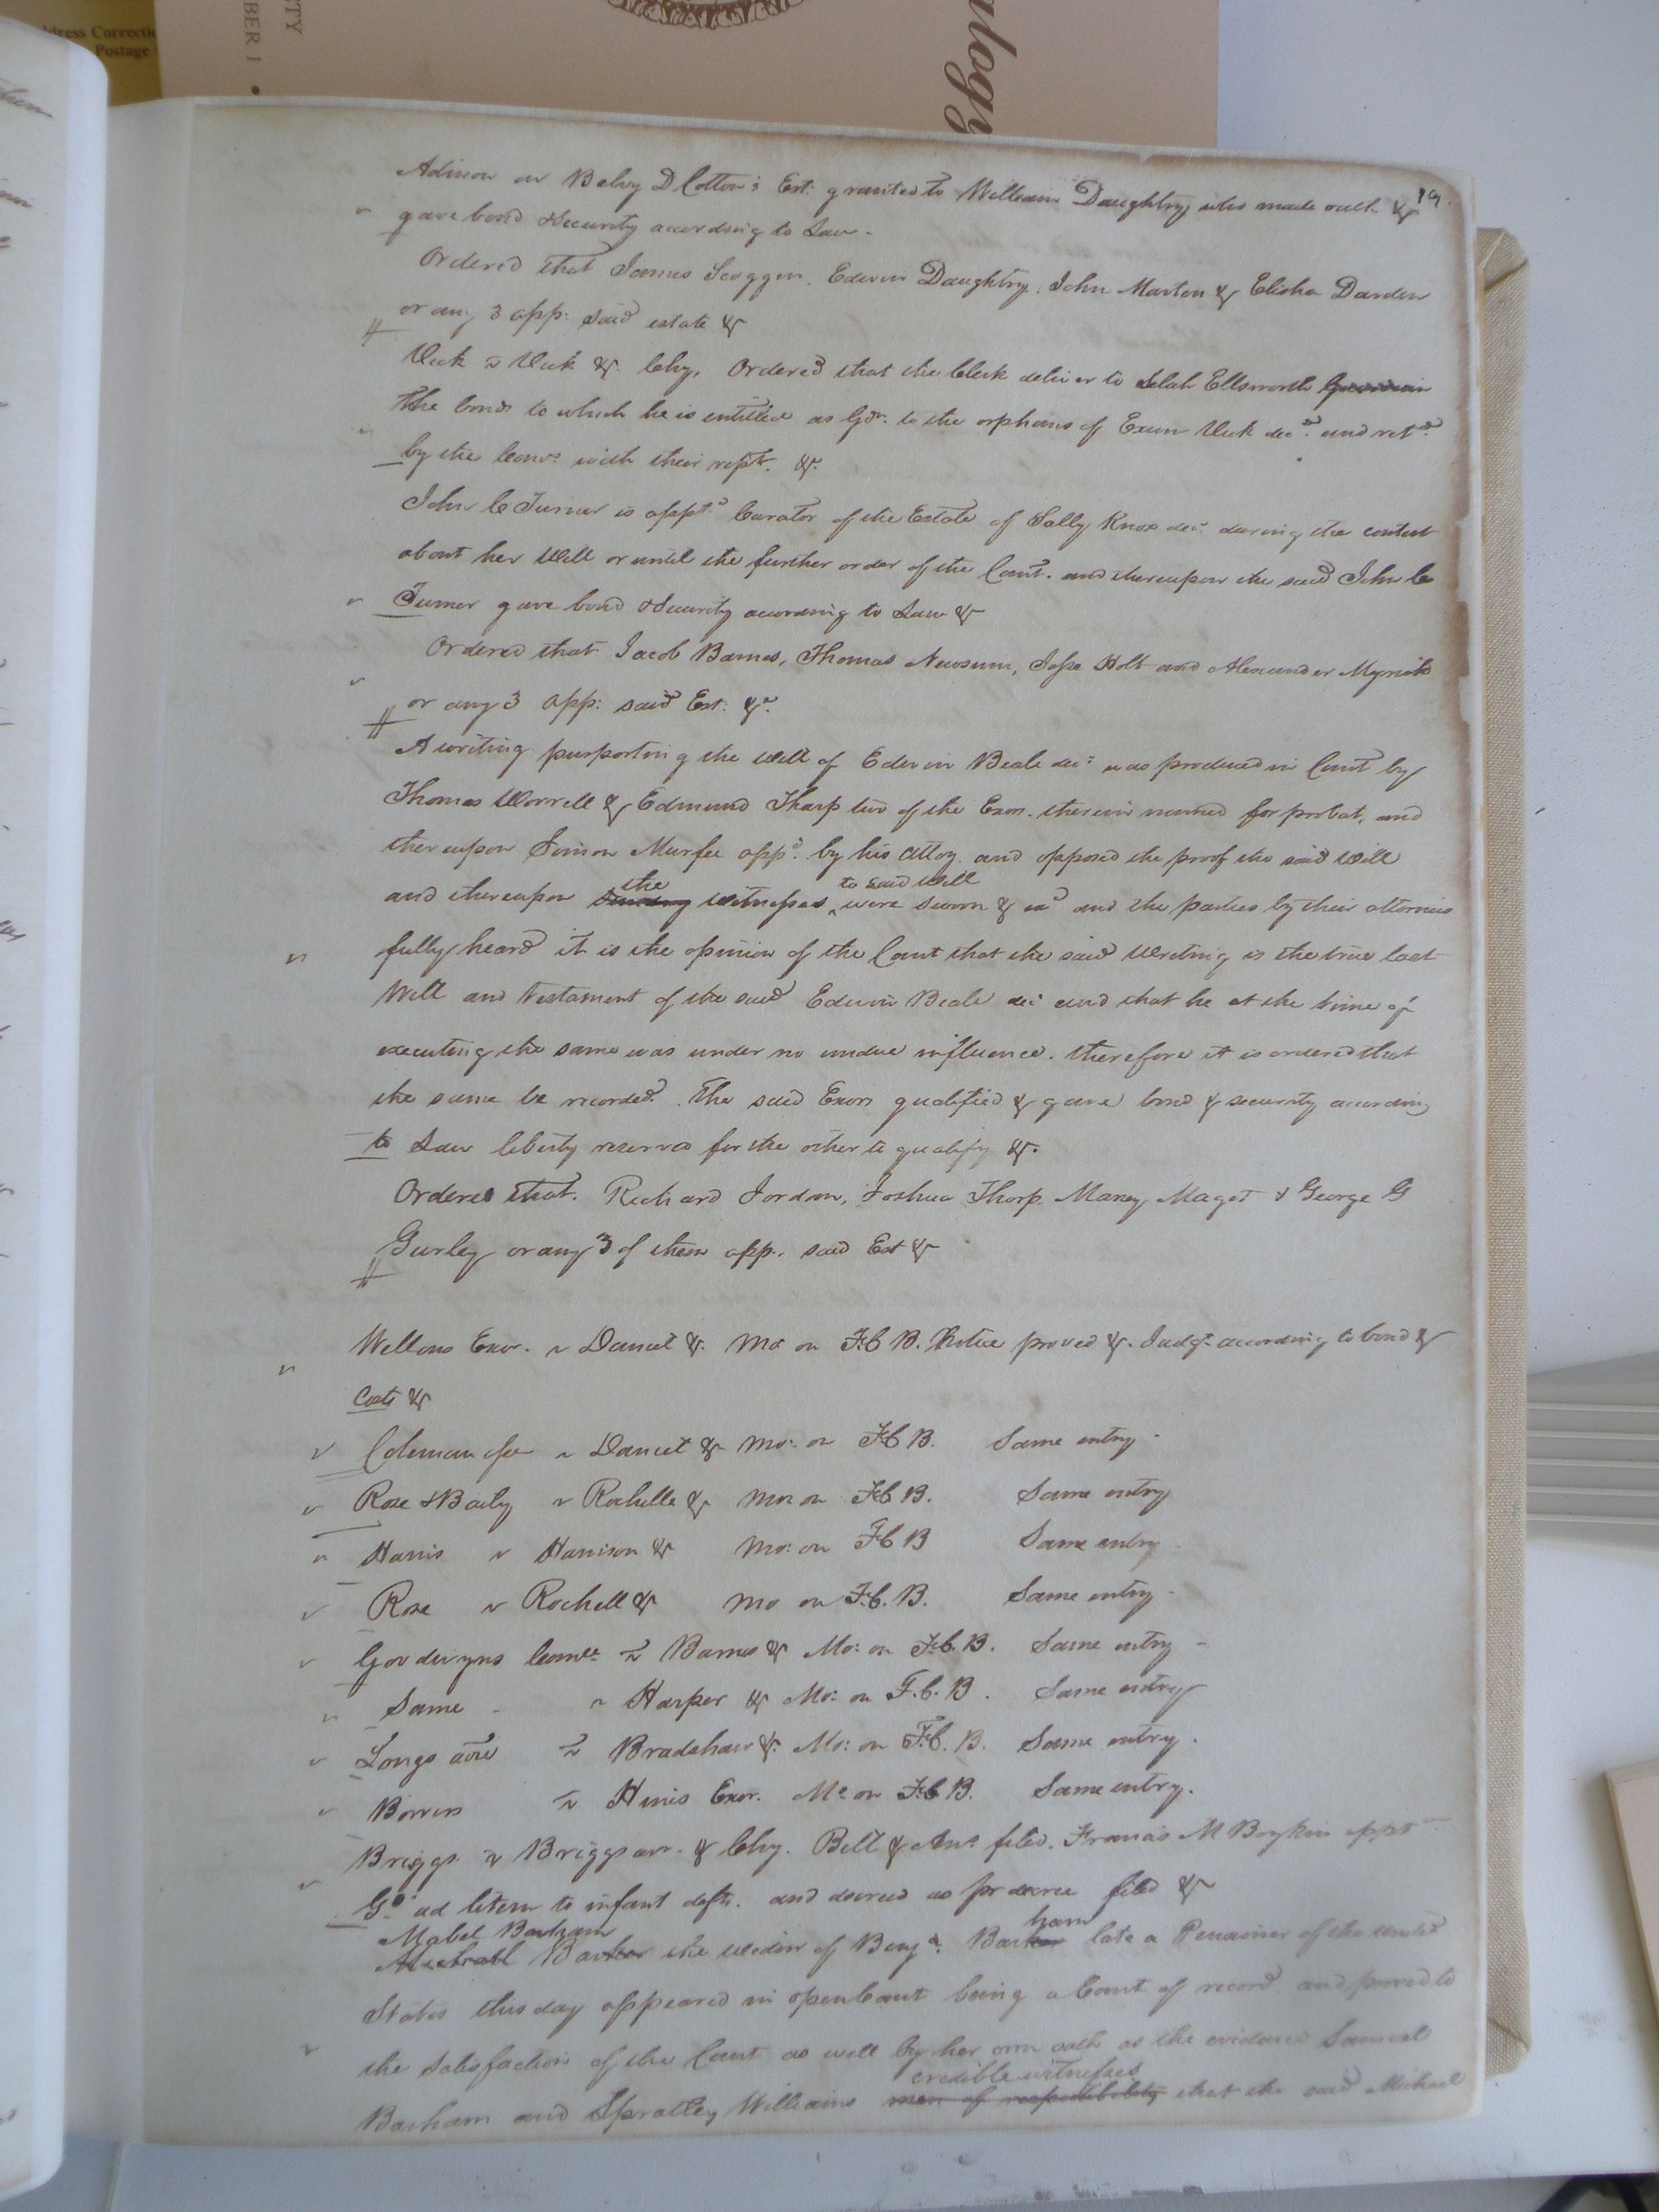 Address Correction
Postage
TY
BER 1 •
alogy
19.
Admon on Belvy D Cotton's Est: granted to William Daughtry who made oath &
gave bond & Security according to Law.
Ordered that James Scoggin, Edwin Daughtry, John Marton & Elisha Darden
or any 3 app: said estate &
Vick v Vick & Chy. Ordered that the Clerk deliver to Selah Ellsworth
the bonds to which he is entitled as Gdn. to the orphans of Exum Vick decd. and retd.
by the Comrs with their rept. &c.
John C Turner is apptd. Curator of the Estate of Sally Knox dec: during the contest
about her Will or until the further order of the Court. and thereupon the said John C
Turner gave bond & Security according to Law &
Ordered that Jacob Barnes, Thomas Newsum, Jesse Holt and Alexander Myrick
or any 3 app: said Est: &c.
A writing purporting the will of Edwin Beale dec: was produced in Court by
Thomas Worrell & Edmund Tharp two of the Exors. therein named for probat, and
thereupon Simon Murfee appd. by his Attoy. and opposed the proof the said Will
and thereupon the witnesses to said Will were sworn & exd and the parties by their attornies
fully heard it is the opinion of the Court that the said Writing is the true last
Will and Testament of the said Edwin Beale dec: and that he at the time of
executing the same was under no undue influence. therefore it is ordered that
the same be recorded. The said Exors qualified & gave bond & security according
to Law liberty reserved for the other to qualify &c.
Ordered that. Richard Jordan, Joshua Thorp Maney Maget & George G
Gurley or any 3 of them app. said Est &
Wellons Exor. v Daniel &. Mo on F.C B. Notice proved &. Judgt. according to bond &
Costs &
Coleman v Daniel & Mo: on F.C B. Same entry -
Rose & Baily v Rochelle & Mo on F.C B. Same entry
Harris v Harrison & Mo: on F.C B Same entry -
Rose v Rochell & Mo on F.C. B. Same entry -
Goodwyns Comee. v Barnes & Mo: on F.C. B. Same entry -
Same - v Harper & Mo: on F.C. B. Same entry
Longs v Bradshaw &. Mo: on F.C. B. Same entry.
v Hines Exor. Mo on F.C B. Same entry.
Briggs v Briggs & Chy. Bill & Ans. filed. Francis M Boykin apptd
Gd. ad litem to infant defts. and decree as pr decree filed &
Mabel Barham
the widow of Benja. Barham late a Pensioner of the United
States this day appeared in open Court being a Court of record and proved to
the satisfaction of the Court as well by her own oath as the evidence Samuel
credible witnesses
Barham and Spratley Williams men of respectability that the said Michael